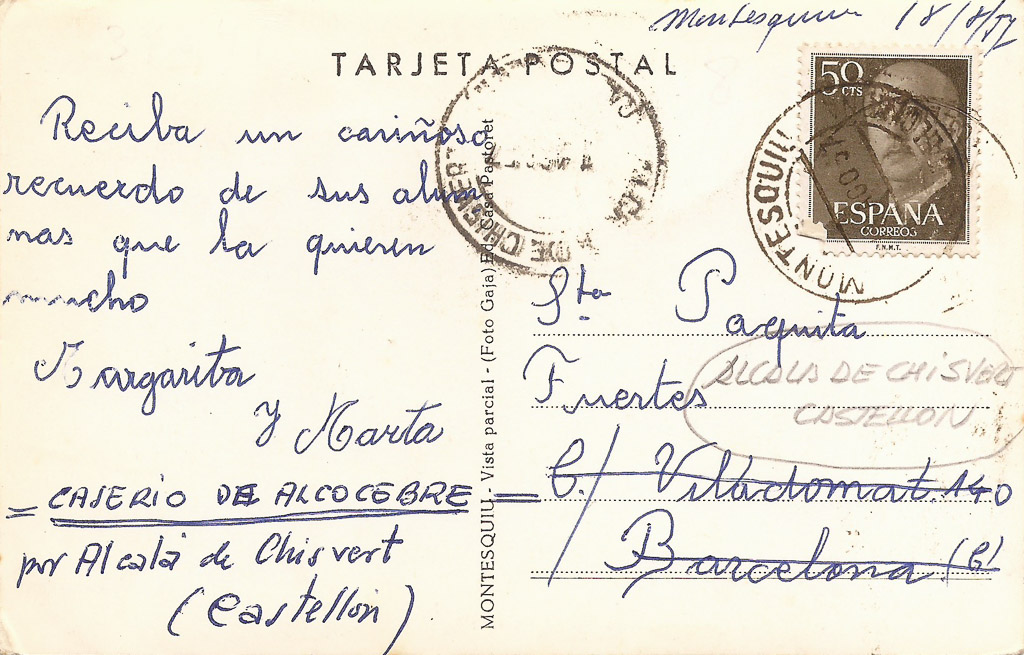 Montesquiu 18/8/57
TARJETA POSTAL
50
CTS
ESPAÑA
CORREOS
F.N.M.T.
MONTESQUIU
Reciba un cariñoso
recuerdo de sus alum
nas que la quieren
mucho
Margarita
y Marta
= CASERIO DE ALCOCEBRE =
por Alcalá de Chisvert
(Castellón)
DE CHISVERT
MONTESQUIU.- Vista parcial - (Foto Gaja) Ed. Casa Pastoret
Sta Paquita
Fuertes
ALCALA DE CHISVERT
CASTELLON
C./ Villadomat 140
Barcelona